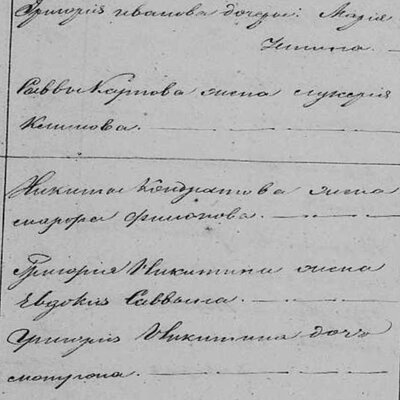 Григорія иванова дочери: Марія
Саввы Карпова жена глукерія
Климова.
Никиты Кондратова жена
марфа филопова.
Григорія Никитина жена
Евдокия Саввина.
Григорія Никитина дочь
матрона.